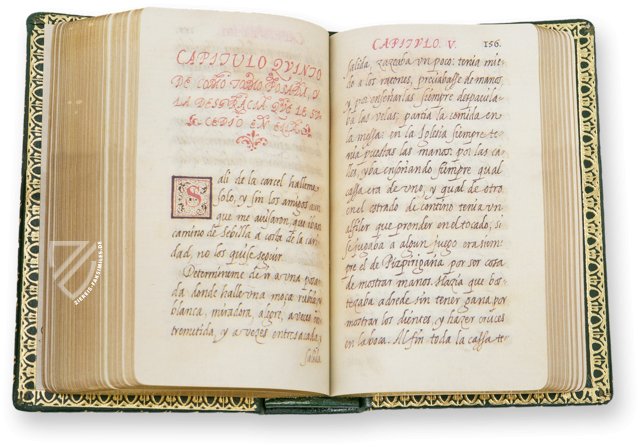 CAPITULO QVINTO
DE COMO TOMO POSADA, Y
LA DESGRACIA QVE LE SV-
CEDIO EN ELLA.
Sali de la carcel halleme
solo, y sin los amigos aun
que me avisaron, que iban
camino de Sebilla a costa de la cari
dad, no los quise seguir.
Determineme de ir a una posa
da donde halle una moça rubia, y
blanca, miradora, alegre, a veces en
tremetida, y a vezes entresacada, y
salida.
ZIEREIS-FAKSIMILES.DE
CAPITVLO. V. 156.
salida, zazeaba un poco: tenia mie
do a los ratones, preciabasse de manos
y por enseñarlas siempre despavila
ba las velas; partia la comida en
la messa; en la Iglesia siempre te
nia puestas las manos; por las ca
lles, yba enseñando siempre qual
cassa era de uno, y qual de otro
en el estrado de contino tenia un
alfiler que prender en el tocado; si
se jugaba a algun juego era siem
pre el de Pizpirigaña por ser cosa
de mostrar manos. Hazia que bo-
tezaba adrede sin tener gana por
mostrar los dientes, y hazer cruces
en la boca. Al fin toda la cassa te